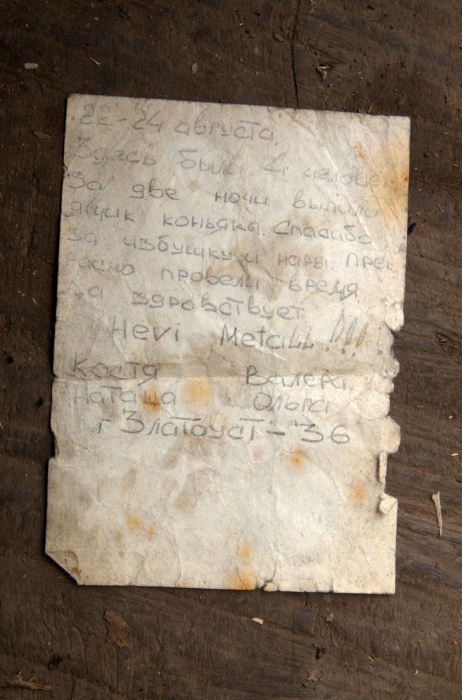 22-24 августа.
Здесь были 4 человек
За две ночи выпили
ящик коньяка. Спасибо
за избушку и нары. Прек
расно провели время
Да здравствует
Hevi Metall !!!
Костя Валера
Наташа Ольга
г Златоуст-36